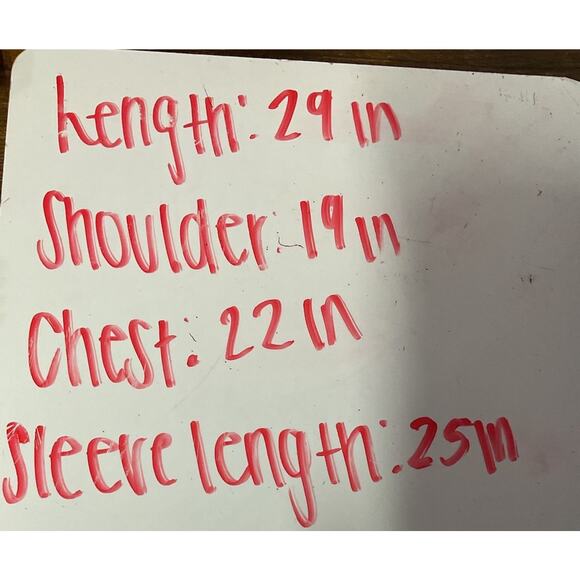 Length: 29 in
Shoulder: 19 in
Chest: 22 in
Sleeve length: 25 in